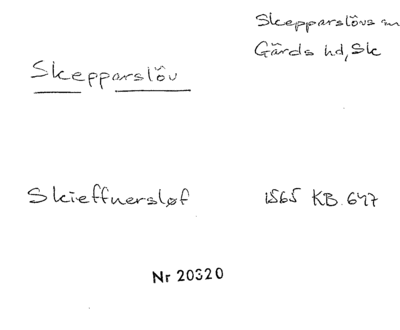 Skepparslövs sn
Gärds hd, Sk
Skepparslöv
Skieffnersløf 1565 KB. 647
Nr 20320